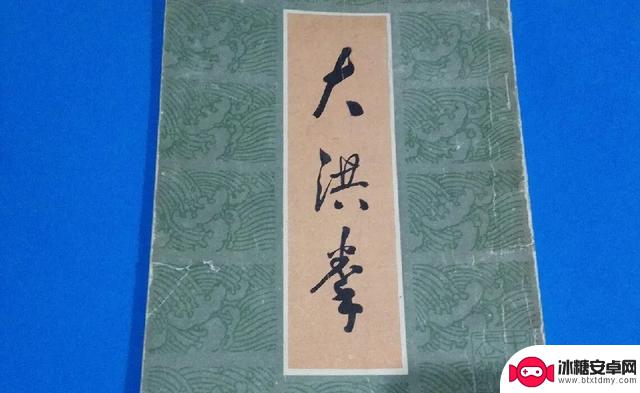 大洪拳
冰糖安卓网
www.btxtdmy.com